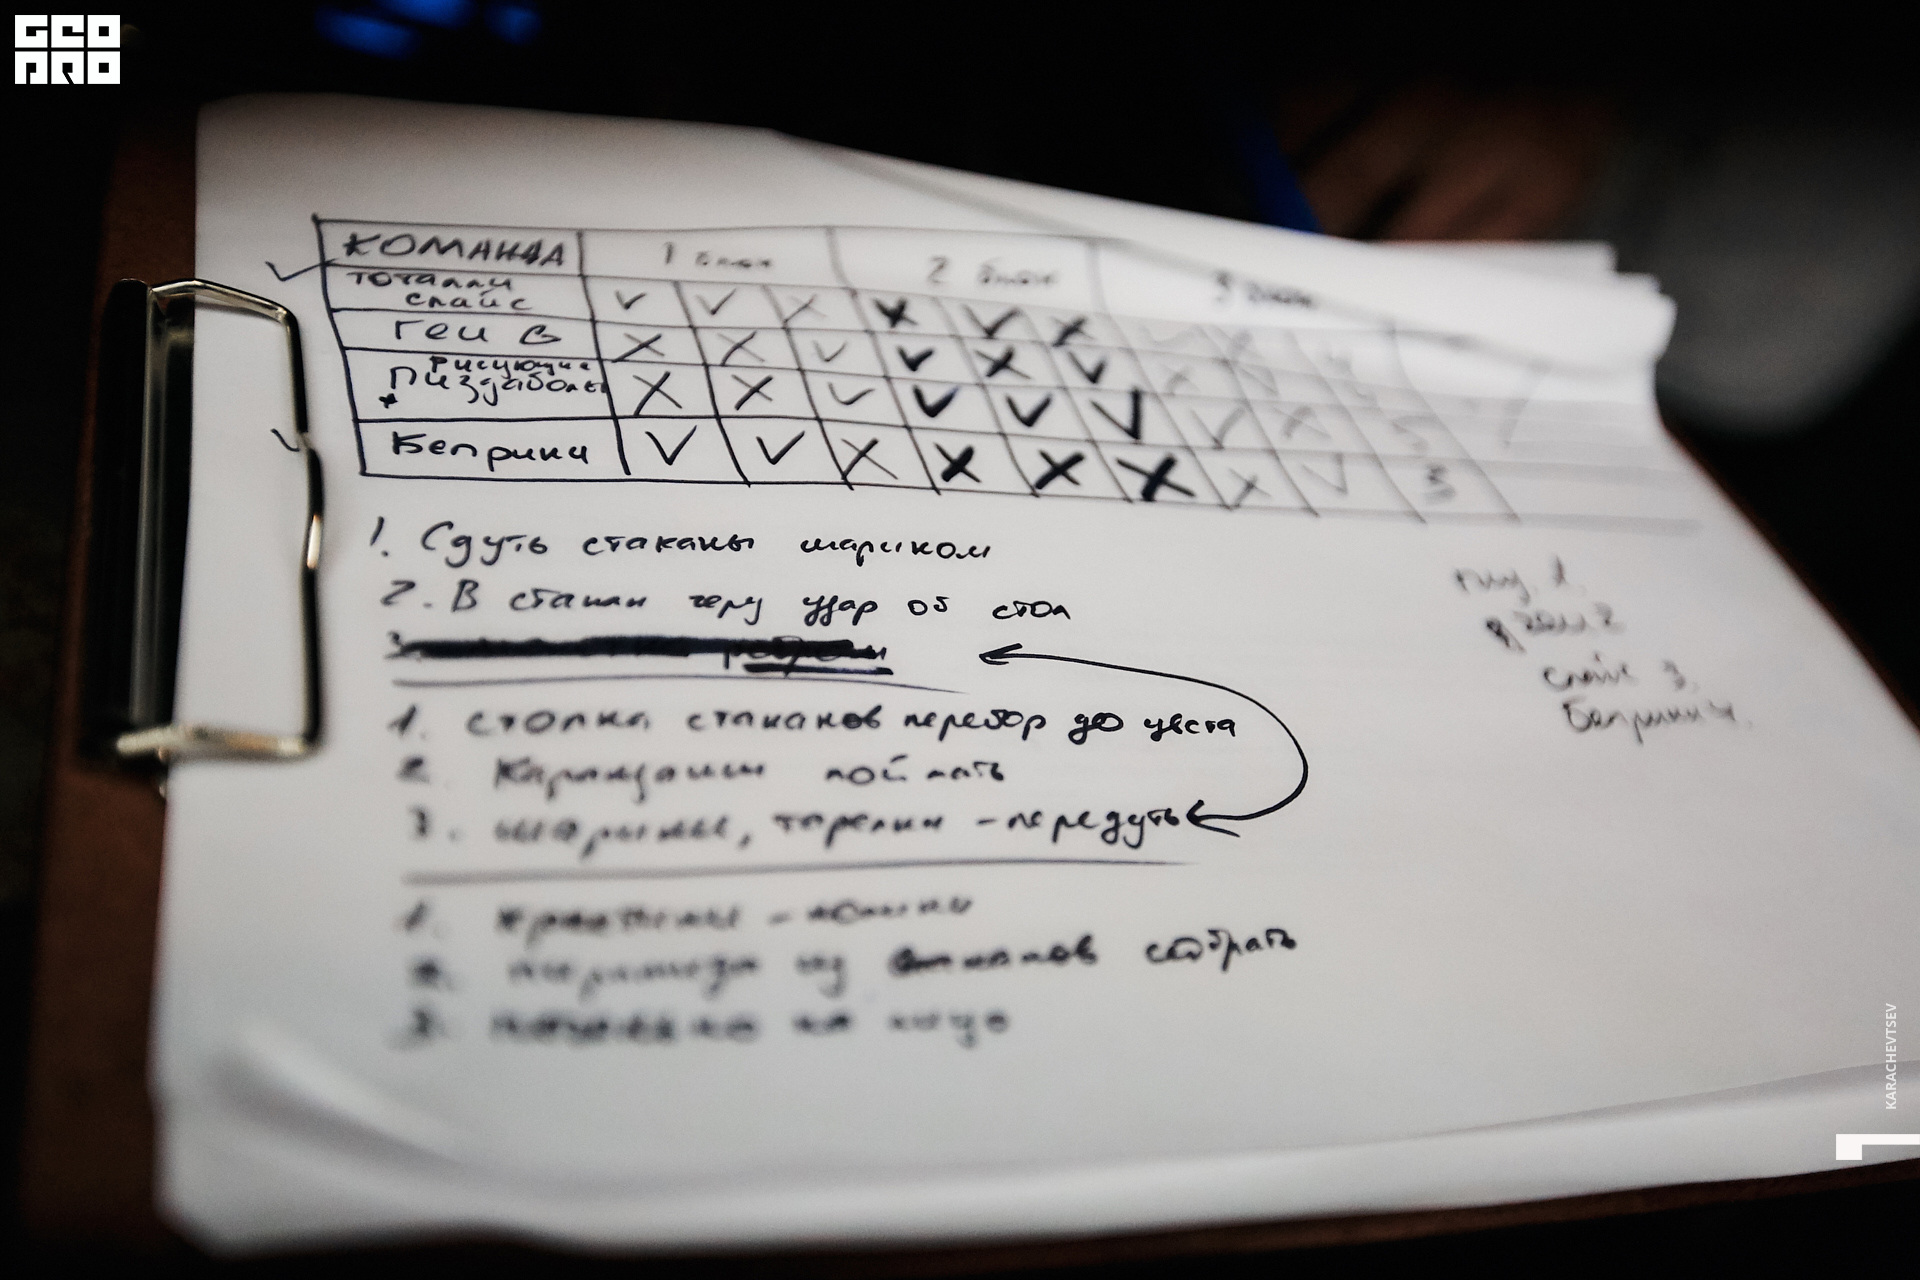 GEO
PRO
КОМАНДА 1 блок 2 блок 3 блок
тоталли
спайс
Геи В
Рисующие
Пиздаболы
Беприки
3
1. Сдуть стаканы шариком
2. В стакан через удар об стол
3.
1. стопка стаканов перебор до цвета
2. Карандаши поймать
3. шарики, тарелки - передуть
1.
2. пирамида из стаканов собрать
3. печенье на лицо
2
спайс 3.
Беприки 4.
KARACHEVTSEV